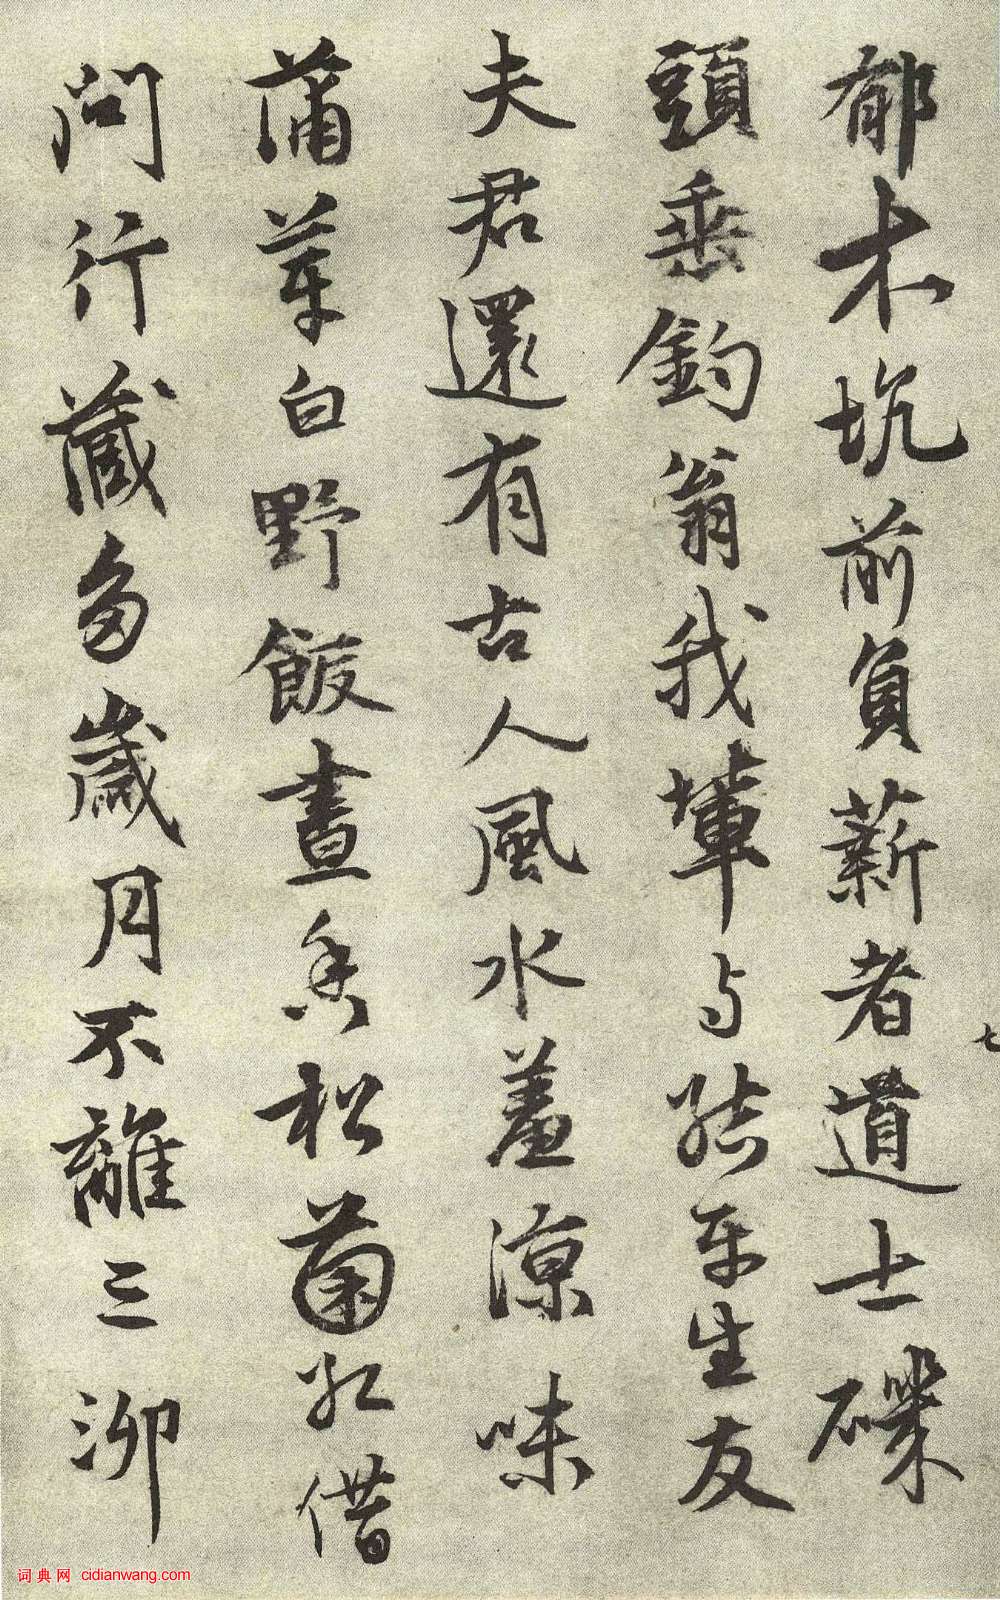 郁木坑前負薪者道士磯
頭垂釣翁我輩与結平生友
夫君還有古人風水羞涼味
蒲芽白野飯晝香松菌紅借
問行藏多歲月不離三泖
七
词典网 cidianwang.com